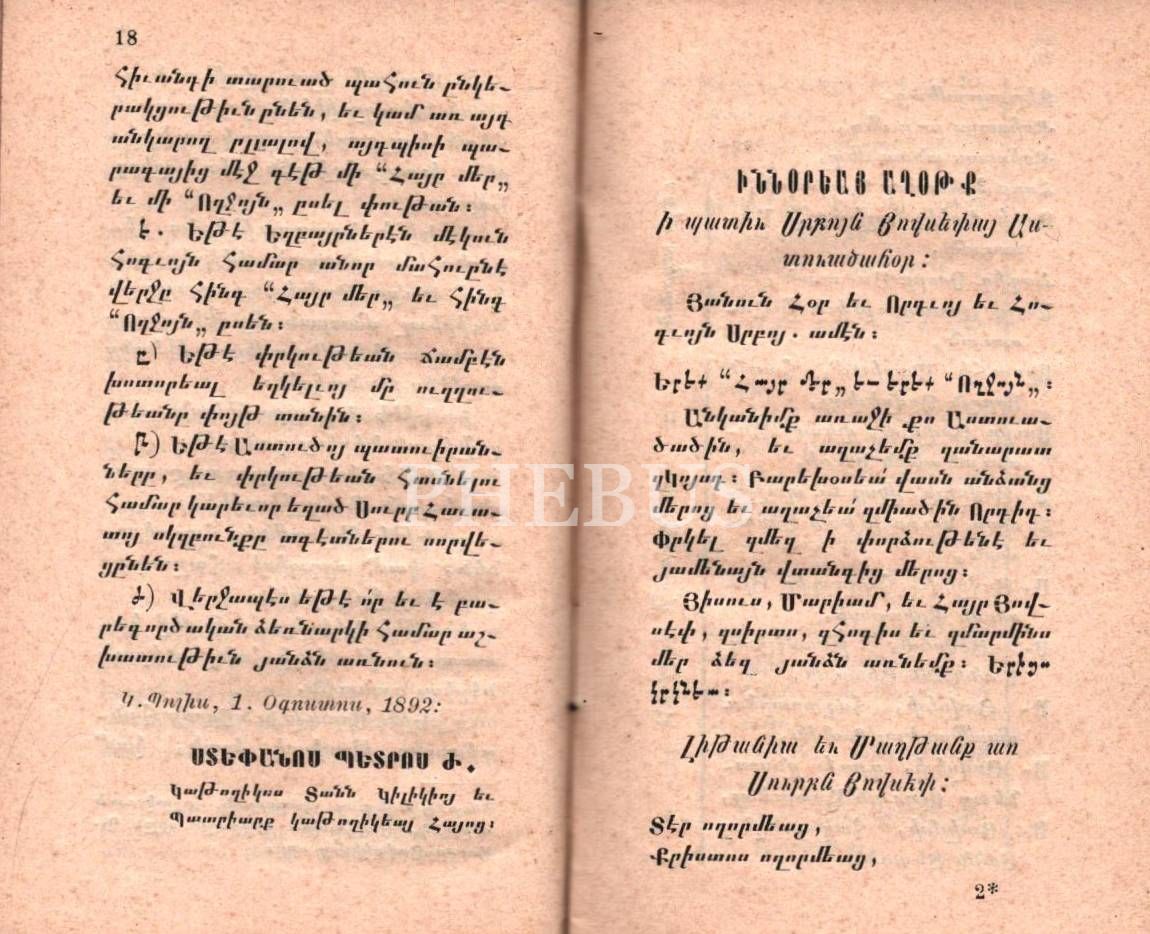 18
հիւանդի տարուած պահուն ընկե-
րակցութիւն ընեն, եւ կամ առ այդ
անկարող ըլլալով, այդպիսի պա-
րագայից մէջ գէթ մի “Հայր մեր„
եւ մի “Ողջոյն„ ըսել փութան։
է. Եթէ Եղբայրներէն մէկուն
հոգւոյն համար անոր մահուրնէ
վերջը հինգ “Հայր մեր„ եւ հինգ
“Ողջոյն„ ըսեն։
ը) Եթէ փրկութեան ճամբէն
խոտորեալ եղկելւոյ մը ուղղու-
թեանը փոյթ տանին։
թ) Եթէ Աստուծոյ պատուիրան-
ները, եւ փրկութեան հասնելու
համար կարեւոր եղած Սուրբ Հաւա-
տոյ սկզբունքը տգէտներու սորվե-
ցընեն։
ժ) Վերջապէս եթէ ո՛ր եւ է բա-
րեգործական ձեռնարկի համար աշ-
խատութիւն յանձն առնուն։
Կ. Պոլիս, 1. Օգոստոս, 1892։
ՍՏԵՓԱՆՈՍ ՊԵՏՐՈՍ Ժ.
Կաթողիկոս Տանն Կիլիկիոյ եւ
Պատրիարք կաթողիկեայ Հայոց։
ԻՆՆՕՐԵԱՅ ԱՂՕԹՔ
ի պատիւ Սրբոյն Յովսեփայ Աս-
տուածահօր։
Յանուն Հօր եւ Որդւոյ եւ Հո-
գւոյն Սրբոյ. ամէն։
Երեք “Հայր մեր„ եւ երեք “Ողջոյն„։
Անկանիմք առաջի քո Աստուա-
ծածին, եւ աղաչեմք զանարատ
զԿոյսդ։ Բարեխօսեա՛ վասն անձանց
մերոց եւ աղաչեա՛ զմիածին Որդիդ։
Փրկել զմեզ ի փորձութենէ եւ
յամենայն վտանգից մերոց։
Յիսուս, Մարիամ, եւ Հայր Յով-
սէփ, զսիրտս, զհոգիս եւ զմարմինս
մեր ձեզ յանձն առնեմք։ Երիցս
կրկնեա։
Լիթանիա եւ Մաղթանք առ
Սուրբն Յովսէփ։
Տէր ողորմեաց,
Քրիստոս ողորմեաց,
2*
PHEBUS